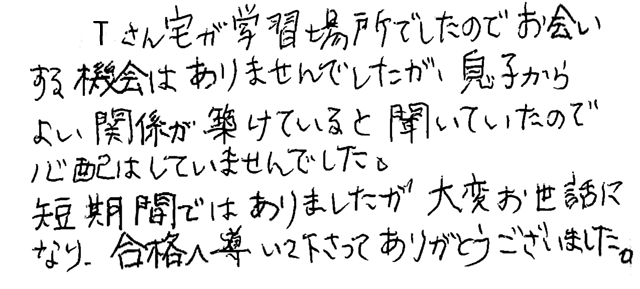 Tさん宅が学習場所でしたのでお会い
する機会はありませんでしたが、息子から
よい関係が築けていると聞いていたので
心配はしていませんでした。
短期間ではありましたが大変お世話に
なり、合格へ導いて下さってありがとうございました。